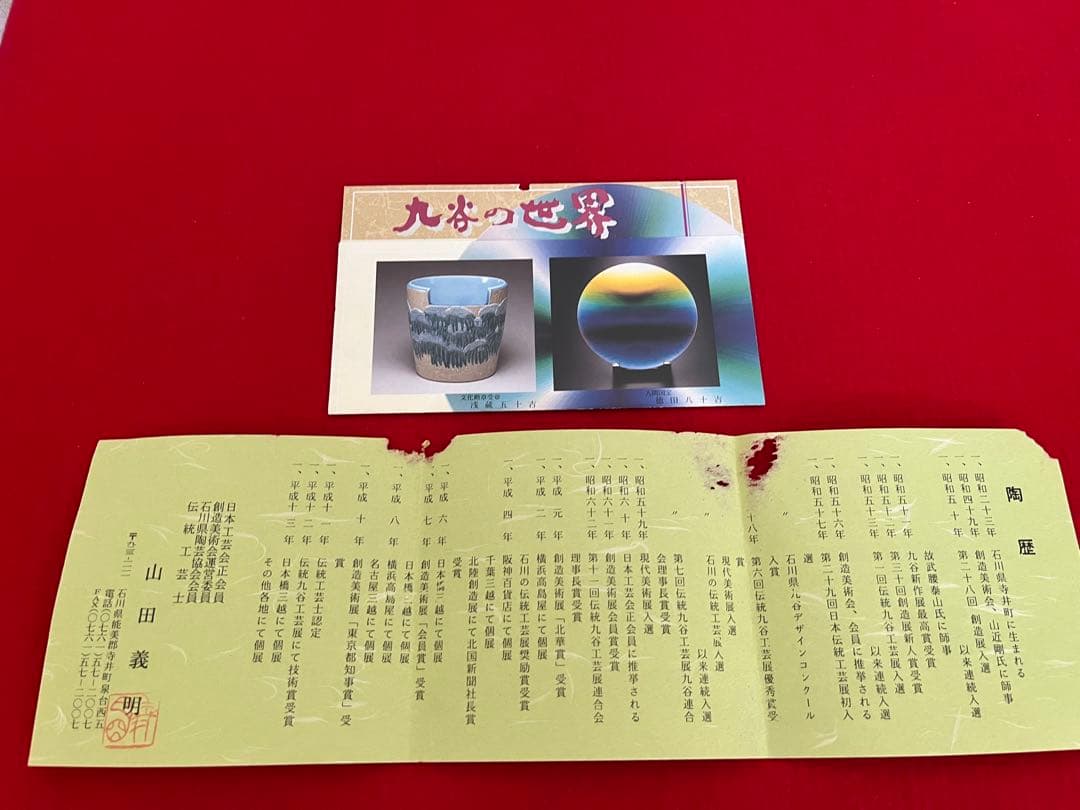 九谷の世界
文化勲章受章
浅蔵五十吉
人間国宝
徳田八十吉
陶歴
一、昭和二十三年 石川県寺井町に生まれる
一、昭和四十九年 創造美術会、山近剛氏に師事
一、昭和五十年 第二十八回 創造展入選
以来連続入選
故武腰泰山氏に師事
一、昭和五十一年 九谷新作展最高賞受賞
一、昭和五十二年 第三十回創造展新人賞受賞
一、昭和五十三年 第一回伝統九谷工芸展入選
以来連続入選
一、昭和五十六年 創造美術会、会員に推挙される
一、昭和五十七年 第二十九回日本伝統工芸展初入
選
〃 石川県九谷デザインコンクール
入賞
十八年 第六回伝統九谷工芸展優秀賞受
賞
現代美術展入選
〃 石川の伝統工芸展入選
以来連続入選
〃 第七回伝統九谷工芸展九谷連合
会理事長賞受賞
一、昭和五十九年 現代美術展入選
一、昭和六十年 日本工芸会正会員に推挙される
一、昭和六十一年 創造美術展会員賞受賞
一、昭和六十二年 第十一回伝統九谷工芸展連合会
理事長賞受賞
一、平成元年 創造美術展「北華賞」受賞
一、平成二年 横浜高島屋にて個展
石川の伝統工芸展奨励賞受賞
一、平成四年 阪神百貨店にて個展
千葉三越にて個展
北陸創造展にて北国新聞社長賞
受賞
一、平成六年 日本橋三越にて個展
一、平成七年 創造美術展「会員賞」受賞
日本橋三越にて個展
一、平成八年 横浜高島屋にて個展
名古屋三越にて個展
一、平成十年 創造美術展「東京都知事賞」受
賞
一、平成十一年 伝統工芸士認定
一、平成十二年 伝統九谷工芸展にて技術賞受賞
一、平成十三年 日本橋三越にて個展
その他各地にて個展
日本工芸会正会員
創造美術会運営委員
石川県陶芸協会会員
伝統工芸士
山田義明
石川県能美郡寺井町泉台西五
電話(〇七六一)五七-二〇〇七
FAX(〇七六一)五七-二〇〇七